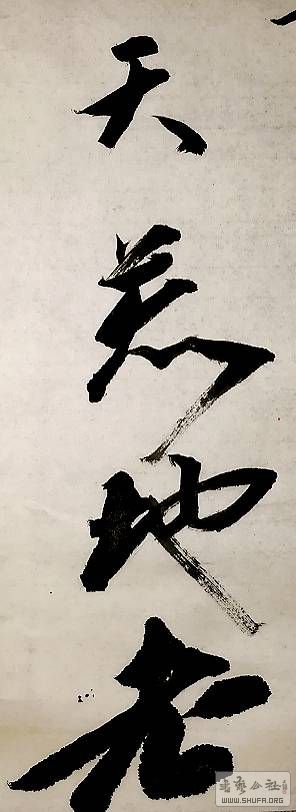 天荒地老
書藝公社
WWW.SHUFA.ORG